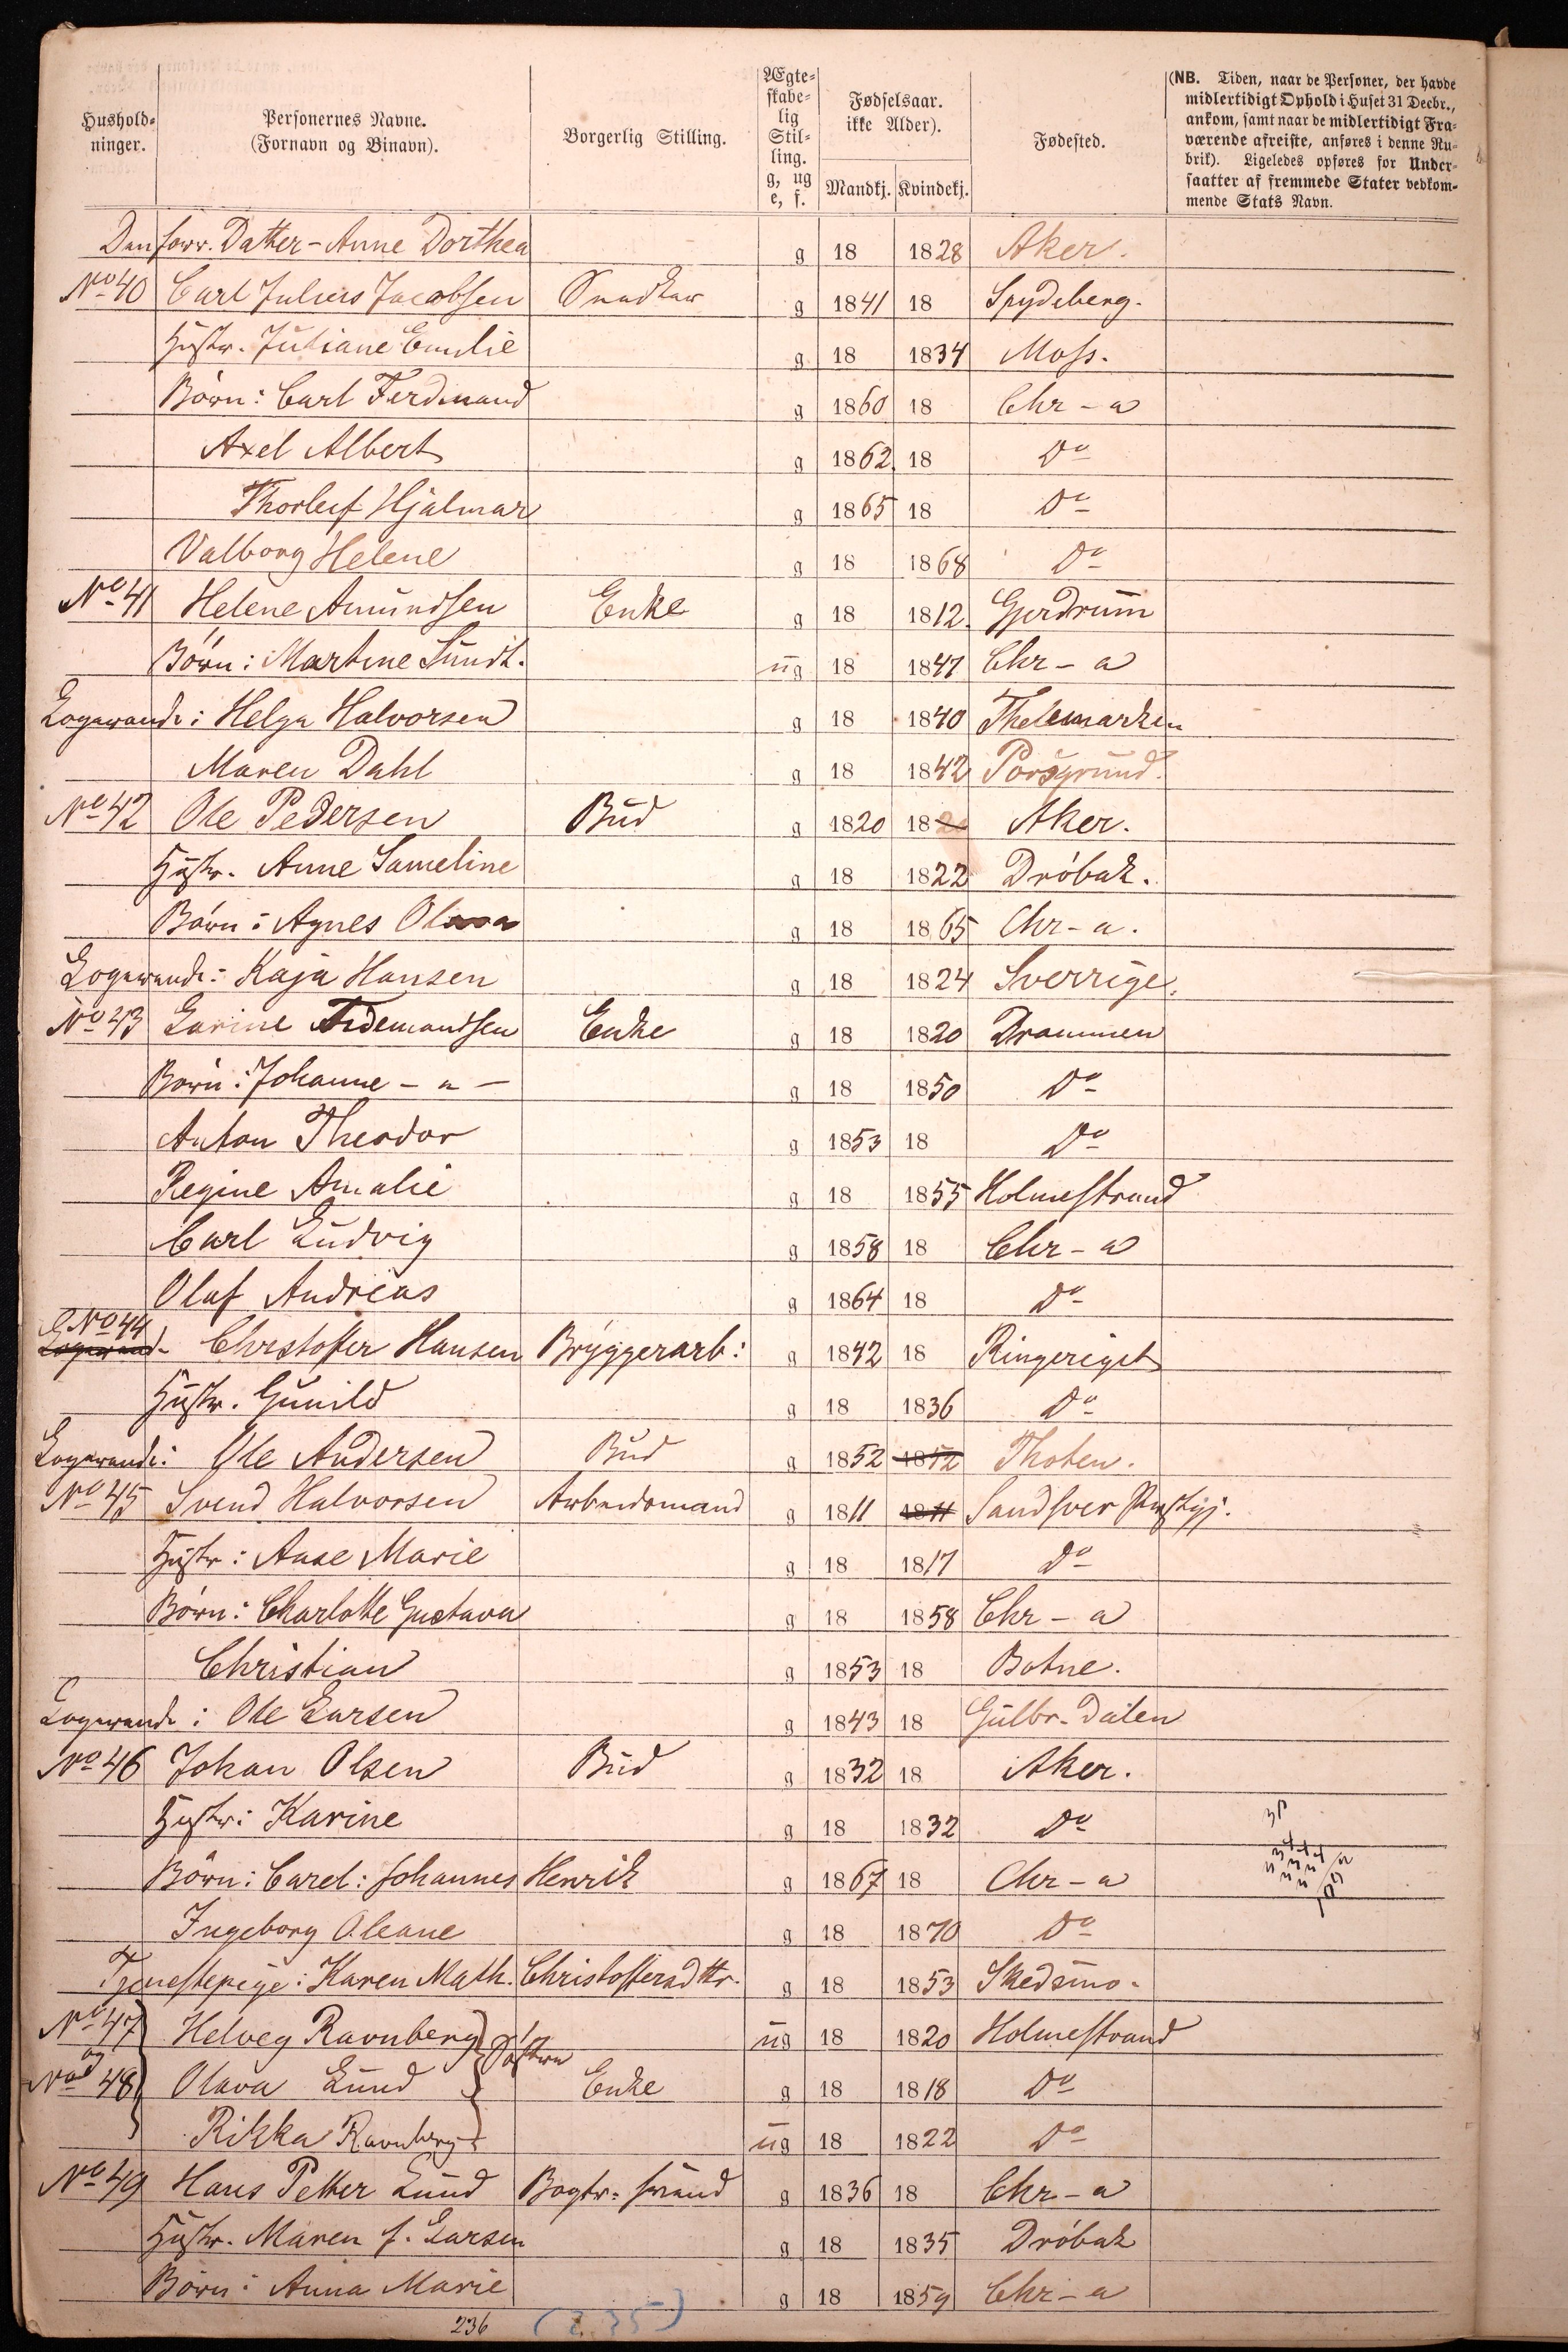 Hushold-
ninger.
Personernes Navne.
(Fornavn og Binavn).
Borgerlig Stilling.
Ægte-
skabe-
lig
Stil-
ling.
g, ug
e, f.
Fødselsaar.
ikke Alder).
Mandkj. Kvindekj.
Fødested.
(NB. Tiden, naar de Personer, der havde
midlertidigt Ophold i Huset 31 Decbr.,
ankom, samt naar de midlertidigt Fra-
værende afreiste, anføres i denne Ru-
brik). Ligeledes opføres for Under-
saatter af fremmede Stater vedkom-
mende Stats Navn.
Datter - Anne Dorthea g 18 1828 Aker.
No 40 Carl Julius Jacobsen Snedker g 1841 18 Spydeberg.
Hustr. Juliane Emilie g 18 1834 Moss.
Børn: Carl Ferdinand g 1860 18 Chr-a
Axel Albert g 1862 18 Do
Thorleif Hjalmar g 1865 18 Do
Valborg Helene g 18 1868 Do
No 41 Helene Amundsen Enke g 18 1812. Gjerdrum
Børn: Martine Sundt. ug 18 1847 Chr-a
Logerende: Helga Halvorsen g 18 1840 Thelemarken
Maren Dahl g 18 1842 Porsgrund.
No 42 Ole Pedersen Bud g 1820 18 Aker.
Hustr. Anne Sameline g 18 1822 Dröbak.
Børn: Agnes g 18 1865 Chr-a.
Logerende: Kaja Hansen g 18 1824 Sverrige.
No 43 Larine Tidemandsen Enke g 18 1820 Drammen
Børn: Johanne - " - g 18 1850 Do
Anton Theodor g 1853 18 Do
Regine Amalie g 18 1855 Holmestrand
Carl Ludvig g 1858 18 Chr-a
Olaf Andreas g 1864 18 Do
No 44
Christoffer Hansen Bryggerarb: g 1842 18 Ringeriget
Hustr. Gunild g 18 1836 Do
Logerende: Ole Andersen Bud g 1852 1852 Thoten.
No 45 Svend Halvorsen Arbeidsmand g 1811 1811 Sandsver Præstgj.
Hustr: Aase Marie g 18 1817 Do
Børn: Charlotte Gustava g 18 1858 Chr-a
Christian g 1853 18 Botne.
Logerende: Ole Larsen g 1843 18 Gulbr-Dalen
No 46 Johan Olsen Bud g 1832 18 Aker.
Hustr: Karine g 18 1832 Do
Børn: Carel: Johannes Henrik g 1867 18 Chr-a
Ingeborg Oleane g 18 1870 Do
Tjenestepige: Karen Math. Christoffersdttr. g 18 1853 Skedsmo.
No 47 Helveg Ravnberg ug 18 1820 Holmestrand
og
No 48 Olava Lund Søstre Enke g 18 1818 Do
Rikka Ravnberg ug 18 1822 Do
No 49 Hans Petter Lund Bogtr. svend g 1836 18 Chr-a
Hustr. Maren f. Larsen g 18 1835 Dröbak
Børn: Anna Marie g 18 1859 Chr-a
236 (235)